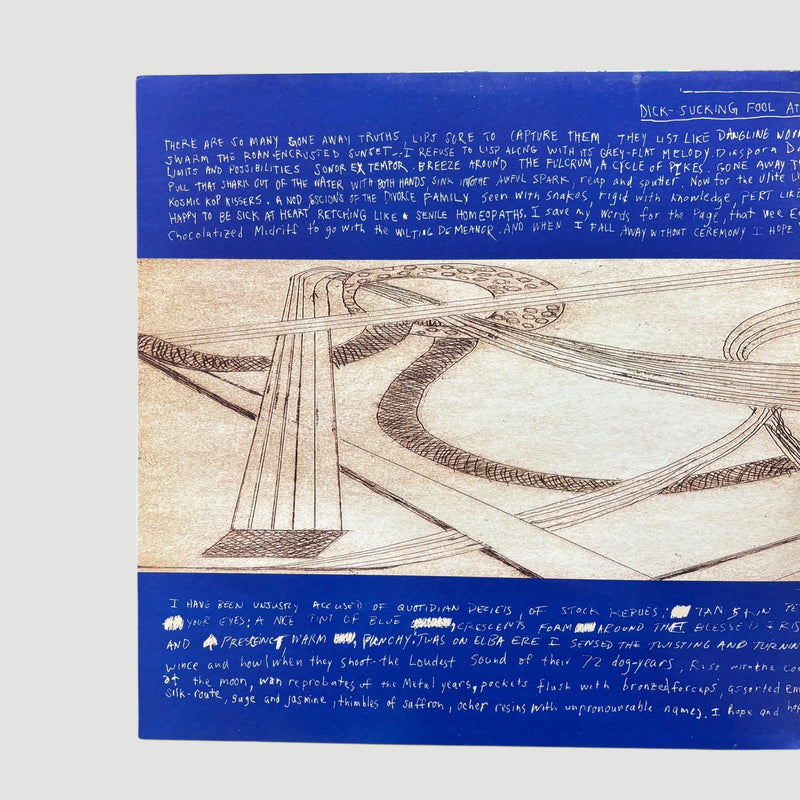 DICK-SUCKING FOOL AT
THERE ARE SO MANY GONE AWAY TRUTHS, LIPS SORE TO CAPTURE THEM, THEY LIST LIKE DANGLING
SWARM THE ROAN-ENCRUSTED SUNSET... I REFUSE TO LISP ALONG WITH ITS GREY-FLAT MELODY. Diaspora
LIMITS AND POSSIBILITIES SONOR EX TEMPOR. BREEZE AROUND THE FULCRUM, A CYCLE OF PIKES. GONE AWAY
PULL THAT SHARK OUT OF THE WATER WITH BOTH HANDS, SINK INTO THE AWFUL SPARK, reap and sputter. Now for the
KOSMIC KOP KISSERS. A NOD SCIONS OF THE DIVORCE FAMILY seen with snakes, rigid with knowledge, PERT LIKE
HAPPY TO BE SICK AT HEART, RETCHING LIKE SENILE HOMEOPATHS. I save my Words for the Page, that
Chocolatized Midriff to go with the WILTING DEMEANOR. AND WHEN I FALL AWAY WITHOUT CEREMONY I HOPE
I HAVE BEEN UNJUSTLY ACCUSED OF QUOTIDIAN DECIETS, OF STOCK REPLIES; TAN SKIN
YOUR EYES; A NICE TINT OF BLUE, CRESCENTS FORM AROUND THE BLESSED
AND PRESCIENT, WARM, PUNCHY. TWAS ON ELBA ERE I SENSED THE TWISTING AND TURNIN
wince and howl when they shoot the Loudest Sound of their 72 dog-years, Rise with the
at the moon, wan reprobates of the Metal years, pockets flush with bronzed forceps, assorted
silk-route, sage and jasmine, thimbles of saffron, ocher resins with unpronounceable names. I hope and